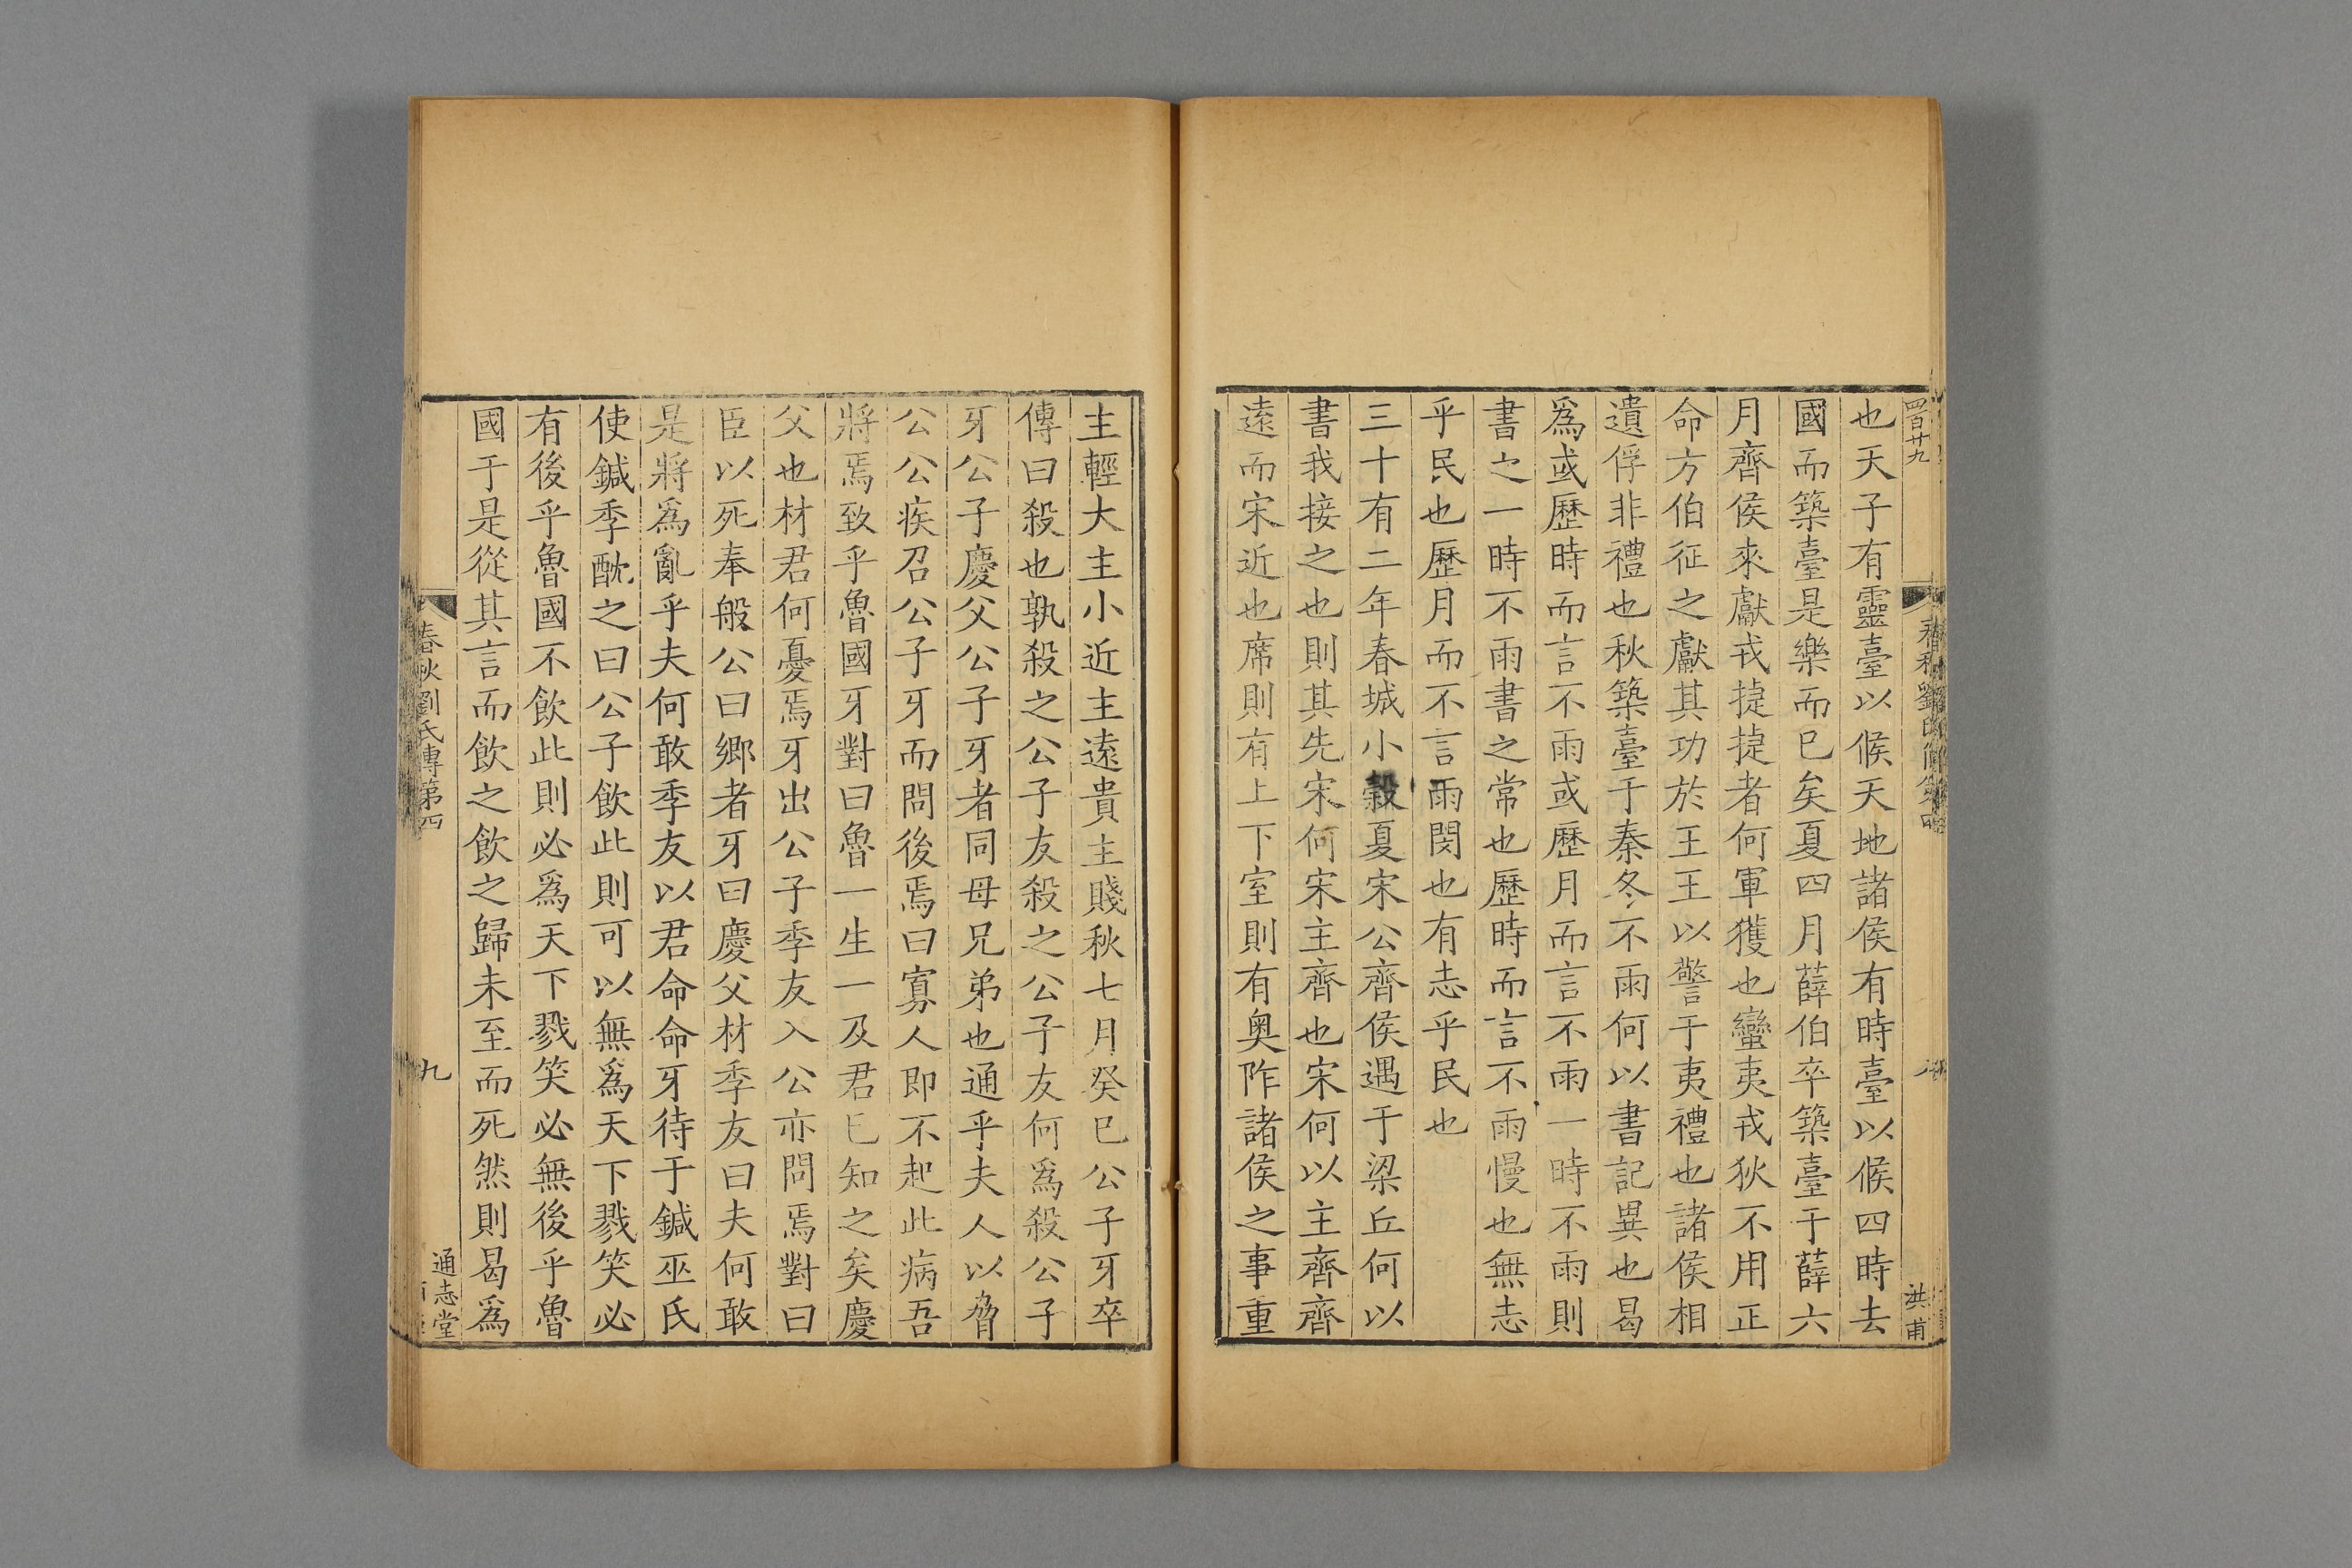 四百廿九
也天子有靈臺以候天地諸侯有時臺以候四時去
國而築臺是樂而已矣夏四月薛伯卒築臺于薛六
月齊侯來獻戎捷捷者何軍獲也蠻夷戎狄不用正
命方伯征之獻其功於王王以警于夷禮也諸侯相
遺俘非禮也秋築臺于秦冬不雨何以書記異也曷
爲或歷時而言不雨或歷月而言不雨一時不雨則
書之一時不雨書之常也歷時而言不雨慢也無志
乎民也歷月而不言雨閔也有志乎民也
三十有二年春城小穀夏宋公齊侯遇于梁丘何以
書我接之也則其先宋何宋主齊也宋何以主齊齊
遠而宋近也席則有上下室則有奧阼諸侯之事重
洪甫
主輕大主小近主遠貴主賤秋七月癸巳公子牙卒
傳曰殺也孰殺之公子友殺之公子友何爲殺公子
牙公子慶父公子牙者同母兄弟也通乎夫人以脅
公公疾召公子牙而問後焉曰寡人即不起此病吾
將焉致乎魯國牙對曰魯一生一及君已知之矣慶
父也材君何憂焉牙出公子季友入公亦問焉對曰
臣以死奉般公曰鄉者牙曰慶父材季友曰夫何敢
是將爲亂乎夫何敢季友以君命命牙待于鍼巫氏
使鍼季酖之曰公子飲此則可以無爲天下戮笑必
有後乎魯國不飲此則必爲天下戮笑必無後乎魯
國于是從其言而飲之飲之歸未至而死然則曷爲
春秋劉氏傳第四
九
通志堂